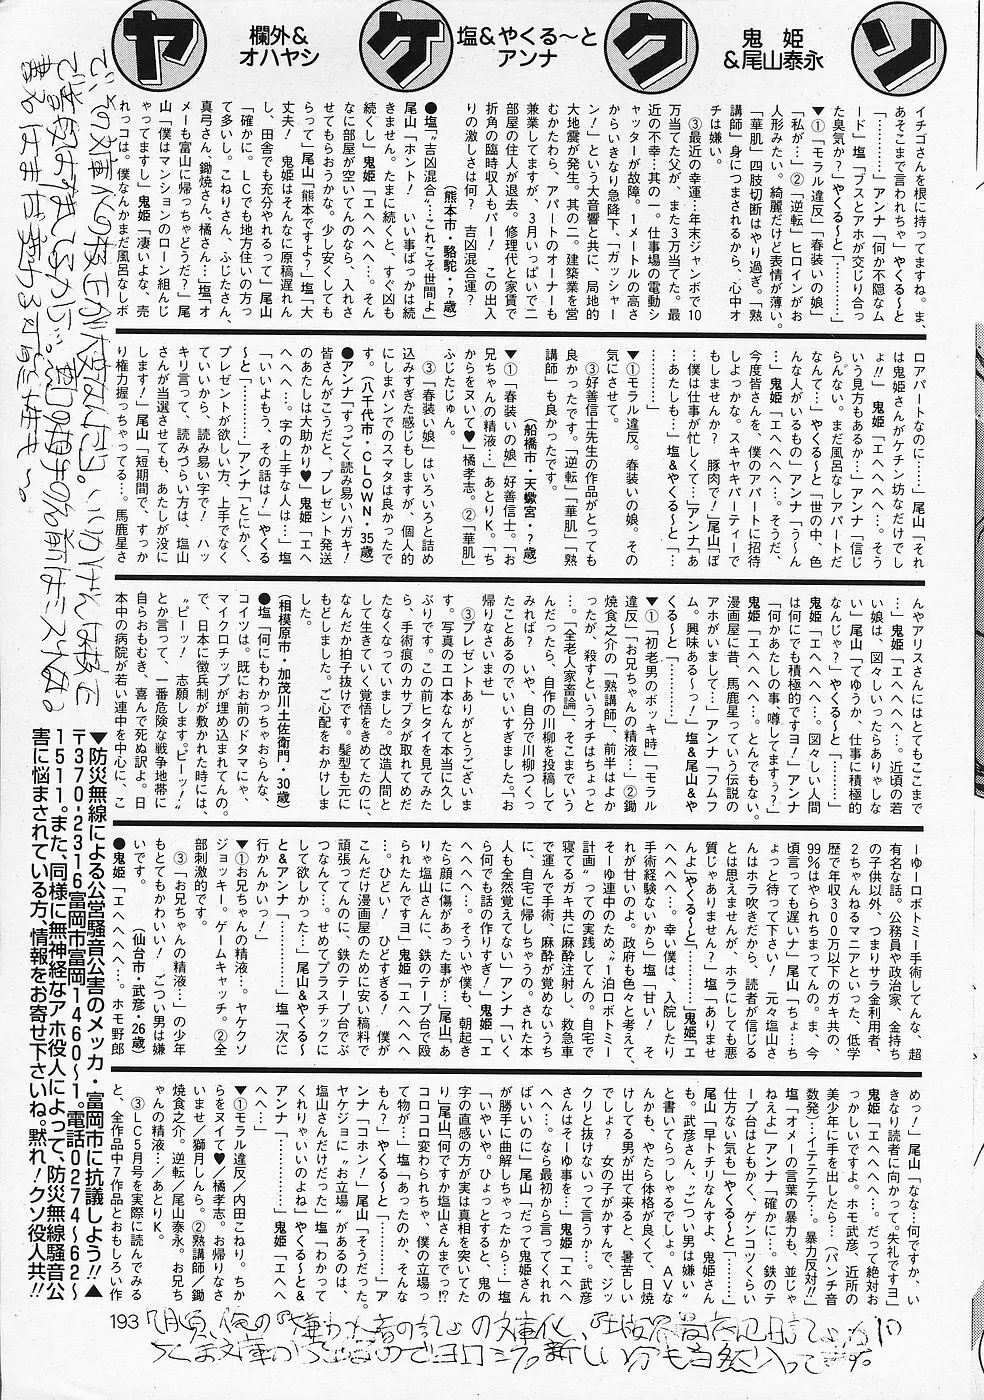 ソ
鬼姫
&尾山泰永
ク
塩&やくる〜と
アンナ
ケ
欄外&
オハヤシ
ヤ
イチゴさんを根に持ってますね。ま、
あそこまで言われちゃ」やくる〜と
「…………」アンナ「何か不穏なム
ード」塩「ブスとアホが交じり合っ
た臭気か？」やくる〜と「………」
▼①「モラル違反」「春装いの娘」
「私が…」②「逆転」ヒロインがお
人形みたい。綺麗だけど表情が薄い。
「華肌」四肢切断はやり過ぎ。「熟
講師」身につまされるから、心中オ
チは嫌い。
③最近の幸運…年末ジャンボで10
万当てた父が、また3万当てた。最
近の不幸…其の一。仕事場の電動シ
ャッターが故障。1メートルの高さ
からいきなり急降下、「ガッシャー
ン！」という大音響と共に、局地的
大地震が発生。其の二。建築業を営
むかたわら、アパートのオーナーも
兼業してますが、3月いっぱいで二
部屋の住人が退去。修理代と家賃で
折角の臨時収入もパー！ この出入
りの激しさは何？ 吉凶混合運？
（熊本市・駱駝・？歳）
●塩〝吉凶混合〟…これこそ世間よ」
尾山「ホント！ いい事ばっかは続
きません。たまに続くと、すぐ凶も
続くし」鬼姫「エヘヘヘヘ…。そん
なに部屋が空いてんのなら、入れさ
せてもらおうかな。少し安くしても
らって」尾山「熊本ですよ？」塩「大
丈夫！ 鬼姫はそんなに原稿遅れん
し、田舎でも充分やれるって」尾山
「確かに。LCでも地方住いの方っ
て多いし。こねりさん、ふじたさん、
真弓さん、鋤焼さん、橘さん…」塩「オ
メーも富山に帰っちゃどうだ？」尾
山「僕はマンションのローン組んじ
ゃってますし」鬼姫「凄いよな、売
れっコは。僕なんかまだ風呂なしボ
ロアパートなのに……」尾山「それ
は鬼姫さんがケチン坊なだけでし
ょ!!」鬼姫「エヘヘヘヘ…。そう
いう見方もあるか…」アンナ「信じ
らんない。まだ風呂なしアパートだ
なんて…」やくる〜と「世の中、色
んな人がいるもの」アンナ「う〜ん
…」鬼姫「エヘヘヘヘ…。そうだ、
今度皆さんを、僕のアパートに招待
しよっかな。スキヤキパーティーで
もしませんか？ 豚肉で」尾山「ぼ
…僕は仕事が忙しくて…」アンナ「あ
…あたしも…」塩&やくる〜と「…
…………」
▼①モラル違反。春装いの娘。その
気にさせて。
③好善信士先生の作品がとっても
良かったです。「逆転」「華肌」「熟
講師」も良かったです。
（船橋市・天蠍宮・？歳）
▼①「春装いの娘」好善信士。「お
兄ちゃんの精液…」あとりK。「ち
からをヌいて♥」橘孝志。②「華肌」
ふじたじゅん。
③「春装い娘」はいろいろと詰め
込みすぎた感じもしますが、個人的
にしまパンでのスマタは良かったで
す。（八千代市・CLOWN・35歳）
●アンナ「すっごく読み易いハガキ！
皆さんがこうだと、プレゼント発送
のあたしは大助かり♥」鬼姫「エヘ
ヘヘヘ…。字の上手な人は…」塩
「いいよもう、その話は！」やくる
〜と「…………」アンナ「とにかく、
プレゼントが欲しい方、上手でなく
ていいから、読み易い字で！ ハッ
キリ言って、読みづらい方は、塩山
さんが当選させても、あたしが没に
します！」尾山「短期間で、すっか
り権力握っちゃってる…。馬鹿星さ
んやアリスさんにはとてもここまで
…」鬼姫「エヘヘヘヘ…。近頃の若
い娘は、図々しいったらありゃしな
い」尾山「てゆうか、仕事に積極的
なんじゃ？」やくる〜と「………」
鬼姫「エヘヘヘヘ…。図々しい人間
は何にでも積極的ですヨ！」アンナ
「何かあたしの事、噂してますぅ？」
鬼姫「エヘヘヘヘ…。とんでもない。
漫画屋に昔、馬鹿星っていう伝説の
アホがいまして…」アンナ「フムフ
ム。興味ある〜っ！」塩&尾山&や
くる〜と「…………」
▼①「初老男のボッキ時」「モラル
違反」「お兄ちゃんの精液…」②鋤
焼食之介の「熟講師」、前半はよか
ったが、殺すというオチはちょっと
…。「全老人家畜論」、そこまでいう
んだったら、自作の川柳を投稿して
みれば？ いや、自分で川柳つくっ
たことあるのでいいすぎました。「お
帰りなさいませ」
③プレゼントありがとうございま
す。写真のエロ本なんて本当に久し
ぶりです。この前ヒタイを見てみた
ら、手術痕のカサブタが取れてめだ
たなくなっていました。改造人間と
して生きていく覚悟をきめてたのに、
なんだか拍子抜けです。髪型も元に
もどしました。ご心配をおかけしま
した。
（相模原市・加茂川土佐衛門・30歳）
●塩「何にもわかっちゃおらんな、
コイツは。既にお前のドタマにゃ、
マイクロチップが埋め込まれてんの。
で、日本に徴兵制が敷かれた時には、
〝ピーッ！ 志願します。ピーッ！〟
とか言って、一番危険な戦争地帯に
自らおもむき、喜んで死ぬ訳よ。日
本中の病院が若い連中を中心に、こ
ーゆーロボトミー手術してんな、超
有名な話。公務員や政治家、金持ち
の子供以外、つまりサラ金利用者、
2ちゃんねるマニアといった、低学
歴で年収300万以下のガキ共の、
99％はやられちまってんの。ま、今
頃言っても遅いナ」尾山「ちょ…ち
ょっと待って下さい！ 元々塩山さ
んはホラ吹きだから、読者が信じる
とは思えませんが、ホラにしても悪
質じゃありません？」塩「ありませ
んよ」やくる〜と「………」鬼姫「エ
ヘヘヘヘ…。幸い僕は、入院したり
手術経験ないから」塩「甘い！ そ
れが甘いのよ。政府も色々と考えて、
そーゆ連中のため、〝1泊ロボトミー
計画〟っての実践してんの。自宅で
寝てるガキ共に麻酔注射し、救急車
で運んで手術、麻酔が覚めないうち
に、自宅に帰しちゃうの。された本
人も全然覚えてない」アンナ「いく
ら何でも話の作りすぎ！」鬼姫「エ
ヘヘヘヘ…。そういや僕も、朝起き
たら顔に傷があった事が…」尾山「あ
りゃ塩山さんに、鉄のテープ台で殴
られたんですヨ」鬼姫「エヘヘヘヘ
…。ひどい！ ひどすぎる！ 僕が
こんだけ漫画屋のために安い稿料で
頑張ってんのに、鉄のテープ台でぶ
つなんて…。せめてプラスチックに
して欲しかった…」尾山&やくる〜
と&アンナ「…………」塩「次に
行かんかいっ！」
▼①お兄ちゃんの精液…。ヤケクソ
ジョッキー。ゲームキャッチ。②全
部刺激的です。
③「お兄ちゃんの精液…」の少年
もとてもかわいい！ ごつい男は嫌
いです。（仙台市・武彦・26歳）
●鬼姫「エヘヘヘヘ…。ホモ野郎
めっ！」尾山「なな…何ですか、い
きなり読者に向かって。失礼ですヨ」
鬼姫「エヘヘヘヘ…。だって絶対お
っかしいですよ。ホモ武彦、近所の
美少年に手を出したら…（パンチ音
数発）…イテテテテ…。暴力反対!!」
塩「オメーの言葉の暴力も、並じゃ
ねぇよ」アンナ「確かに…。鉄のテ
ープ台はともかく、ゲンコツくらい
仕方ない気も」やくる〜と「………」
尾山「早トチリなんすよ、鬼姫さん
も。武彦さん、〝ごつい男は嫌い〟
と書いてらっしゃるでしょ。AVな
んかも、やたら体格が良くて、日焼
けしてる男が出て来ると、暑苦しい
でしょ？ 女の子がかすんで、ジッ
クリと抜けないって言うか…。武彦
さんはそーゆ事を…」鬼姫「エヘヘ
ヘヘ…。なら最初から言ってくれれ
ばいいのに」尾山「だって鬼姫さん
が勝手に曲解しちゃったから…」塩
「いやいや。ひょっとすると、鬼の
字の直感の方が実は真相を突いてた
り」尾山「何ですか塩山さんまでっ!?
コロコロ変わられちゃ、僕の立場っ
て物が…」塩「あったのか、そんな
もん？」やくる〜と「………」ア
ンナ「コホン！」尾山「そうだった。
ヤケジョに〝お立場〟があるのは、
塩山さんだけだった」塩「わかって
くれりゃいいのよね」やくる〜と&
アンナ「…………」鬼姫「エヘヘ
ヘヘ…」
▼①モラル違反／内田こねり。ちか
らをヌイて♥／橘孝志。お帰りなさ
いませ／獅月しんら。②熟講師／鋤
焼食之介。逆転／尾山泰永。お兄ち
ゃんの精液…／あとりK。
③LC5月号を実際に読んでみる
と、全作品中7作品とおもしろい作
▼防災無線による公営騒音公害のメッカ・富岡市に抗議しよう!!▲
〒370-2316富岡市富岡1460〜1。電話0274〜62〜
1511。また、同様に無神経なアホ役人によって、防災無線騒音公
害に悩まされている方、情報をお寄せ下さいね。黙れ！クソ役人共!!
193